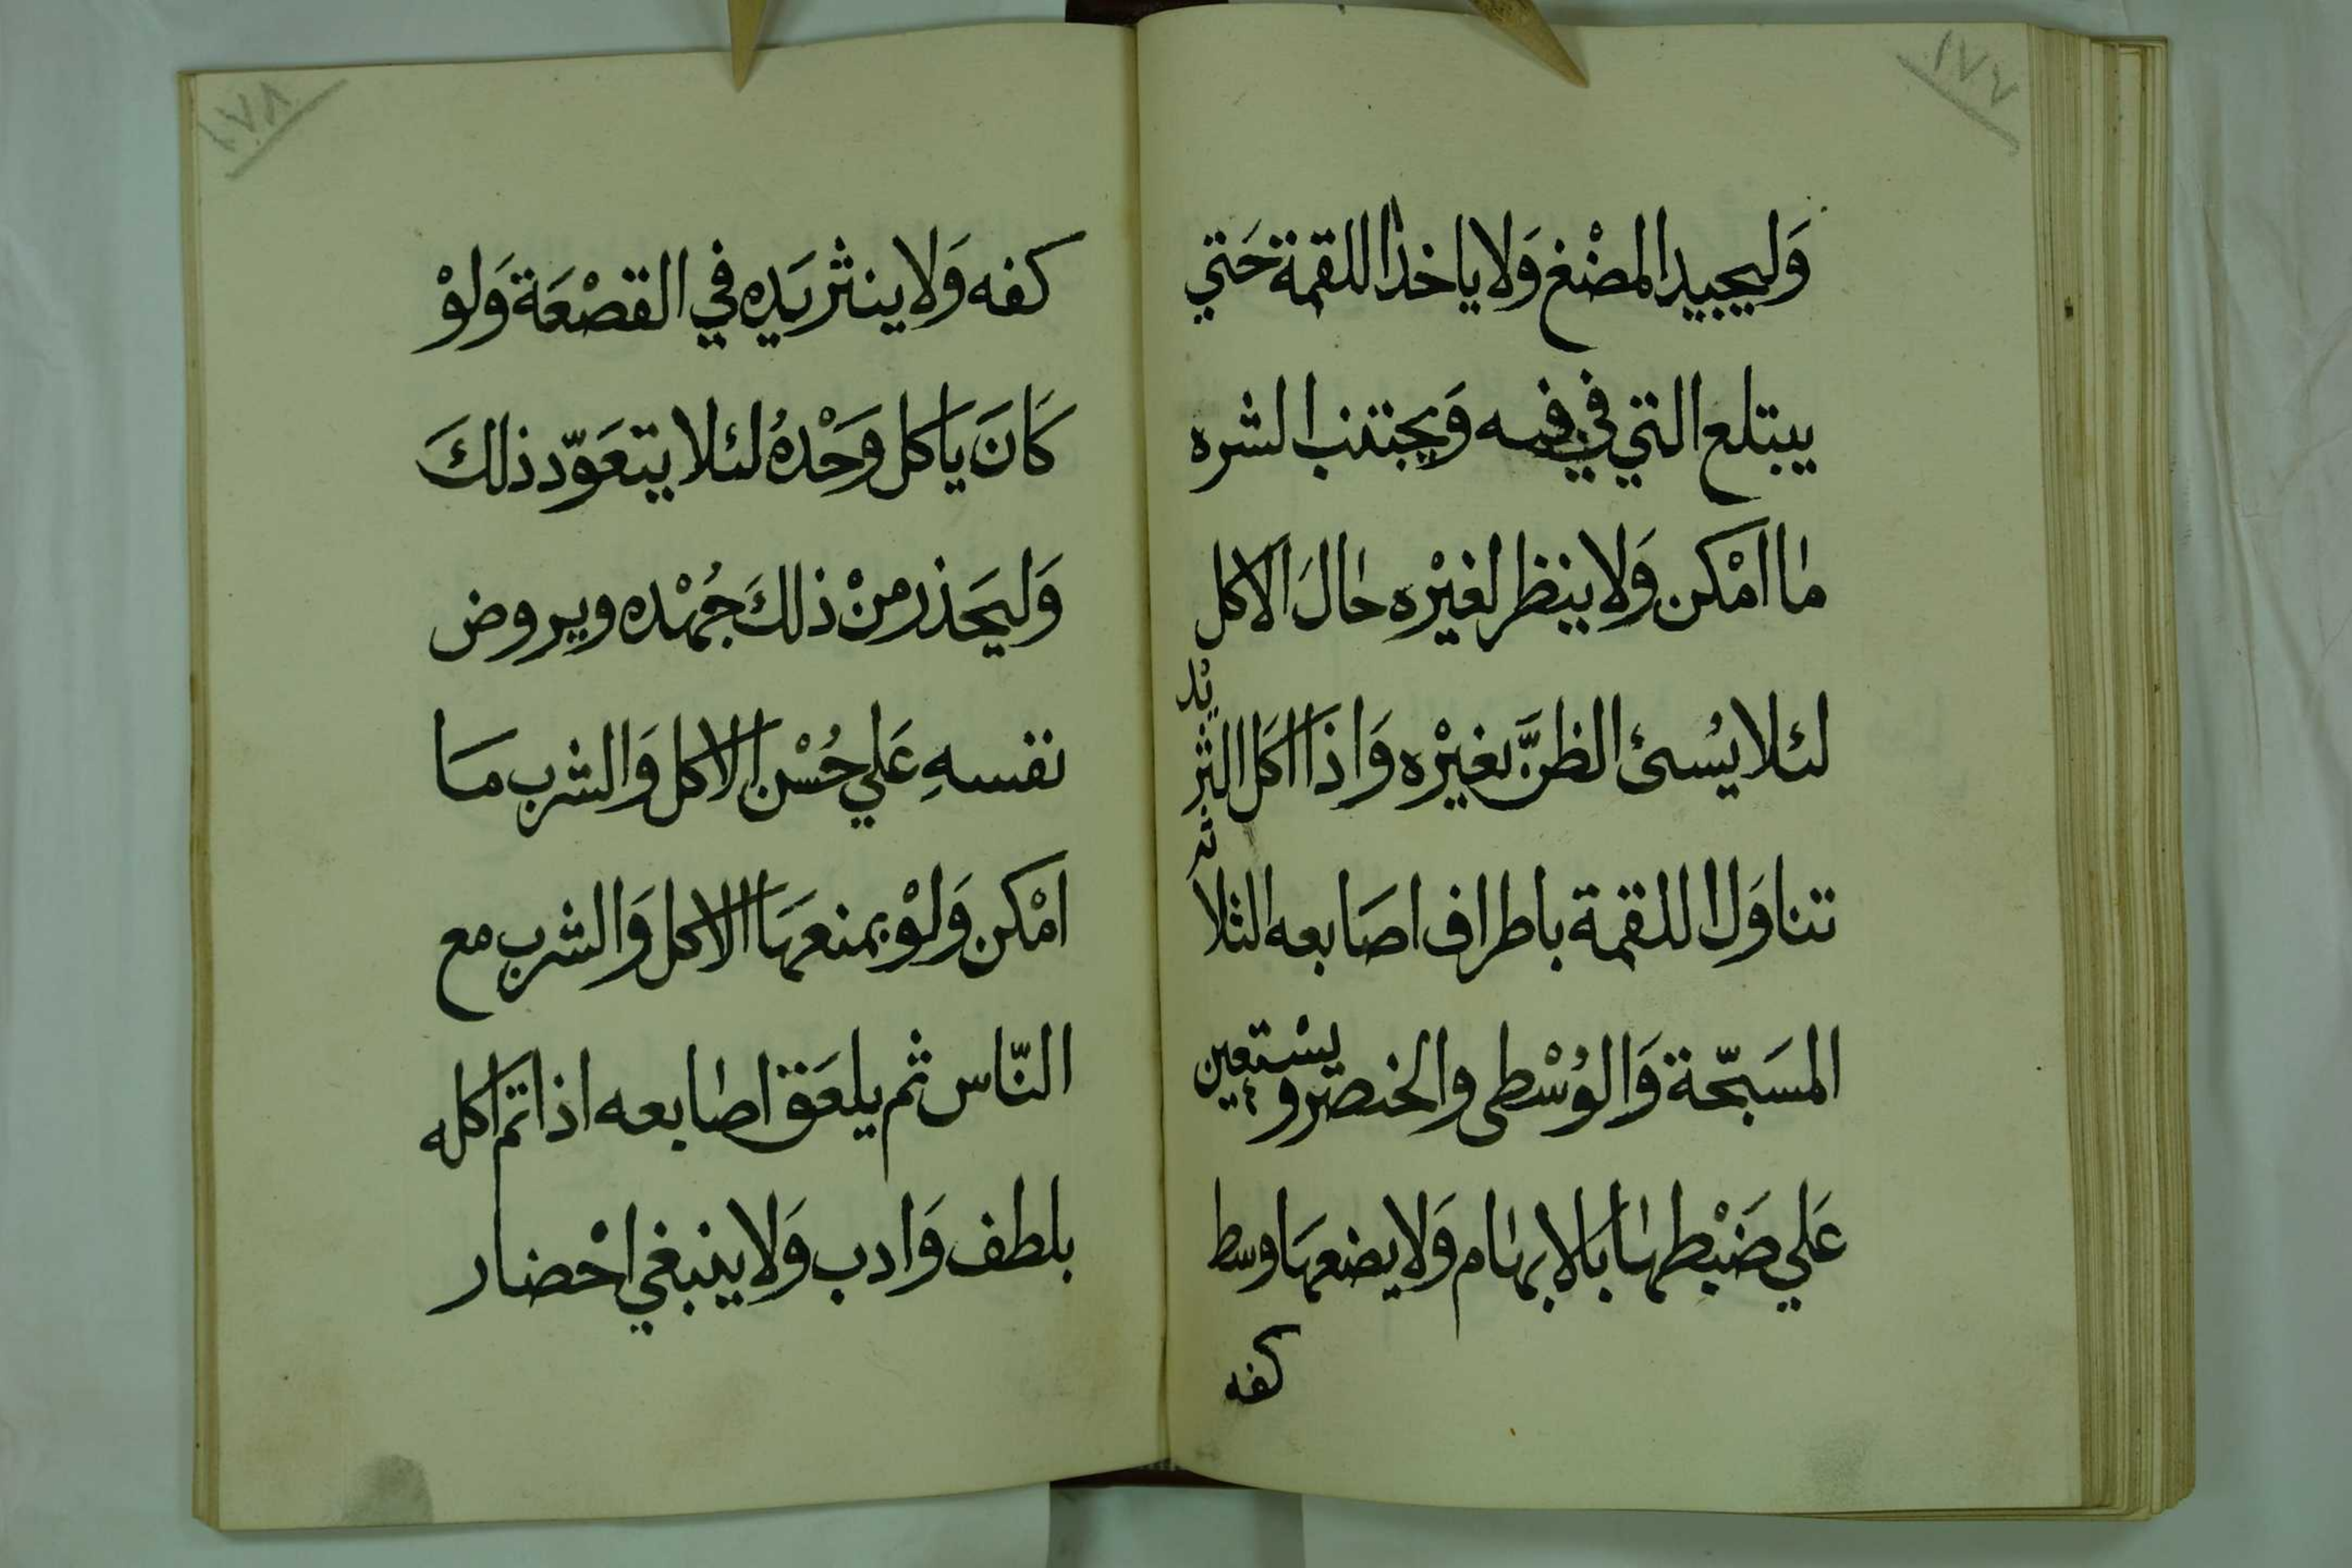 ١٧٧
وَليجيد المضْغ وَلا ياخذ اللقمة حَتي
يبتلع التي في فيه وَيجتنب الشره
ما امْكن وَلا ينظر لغيْره حَال الاكل
لئلا يسُئ الظنَّ بغيْره وَاذَا اكل الثريْد
تناوَل اللقمة باطراف اصَابعه الثلاثة
المسَبّحة وَالوُسْطى والخنصر ويسْتعين
عَلي ضَبْطهَا بالابهَام وَلا يضعهَا وسط
كفه
١٧٨
كفه وَلا ينثر يَده في القصْعَة وَلوْ
كَانَ ياكل وَحْدهُ لئلا يتعَوّد ذلكَ
وَليحَذر منْ ذلكَ جُهْده ويروض
نفسهِ عَلي حُسْن الاكل وَالشرب مَا
امْكن وَلوْ بمنعهَا الاكل وَالشرب مع
النّاس ثم يلعَق اصَابعه اذا تم اكله
بلطف وَادب وَلا ينبغي احْضار